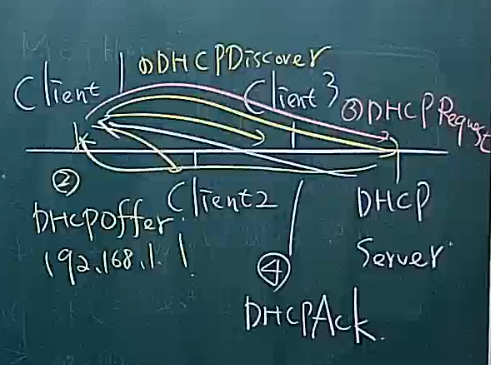 Client 1
①DHCPDiscover
Client 3
③DHCPRequest
②
DHCPOffer
192.168.1.1
Client2
DHCP
Server
④
DHCPAck.